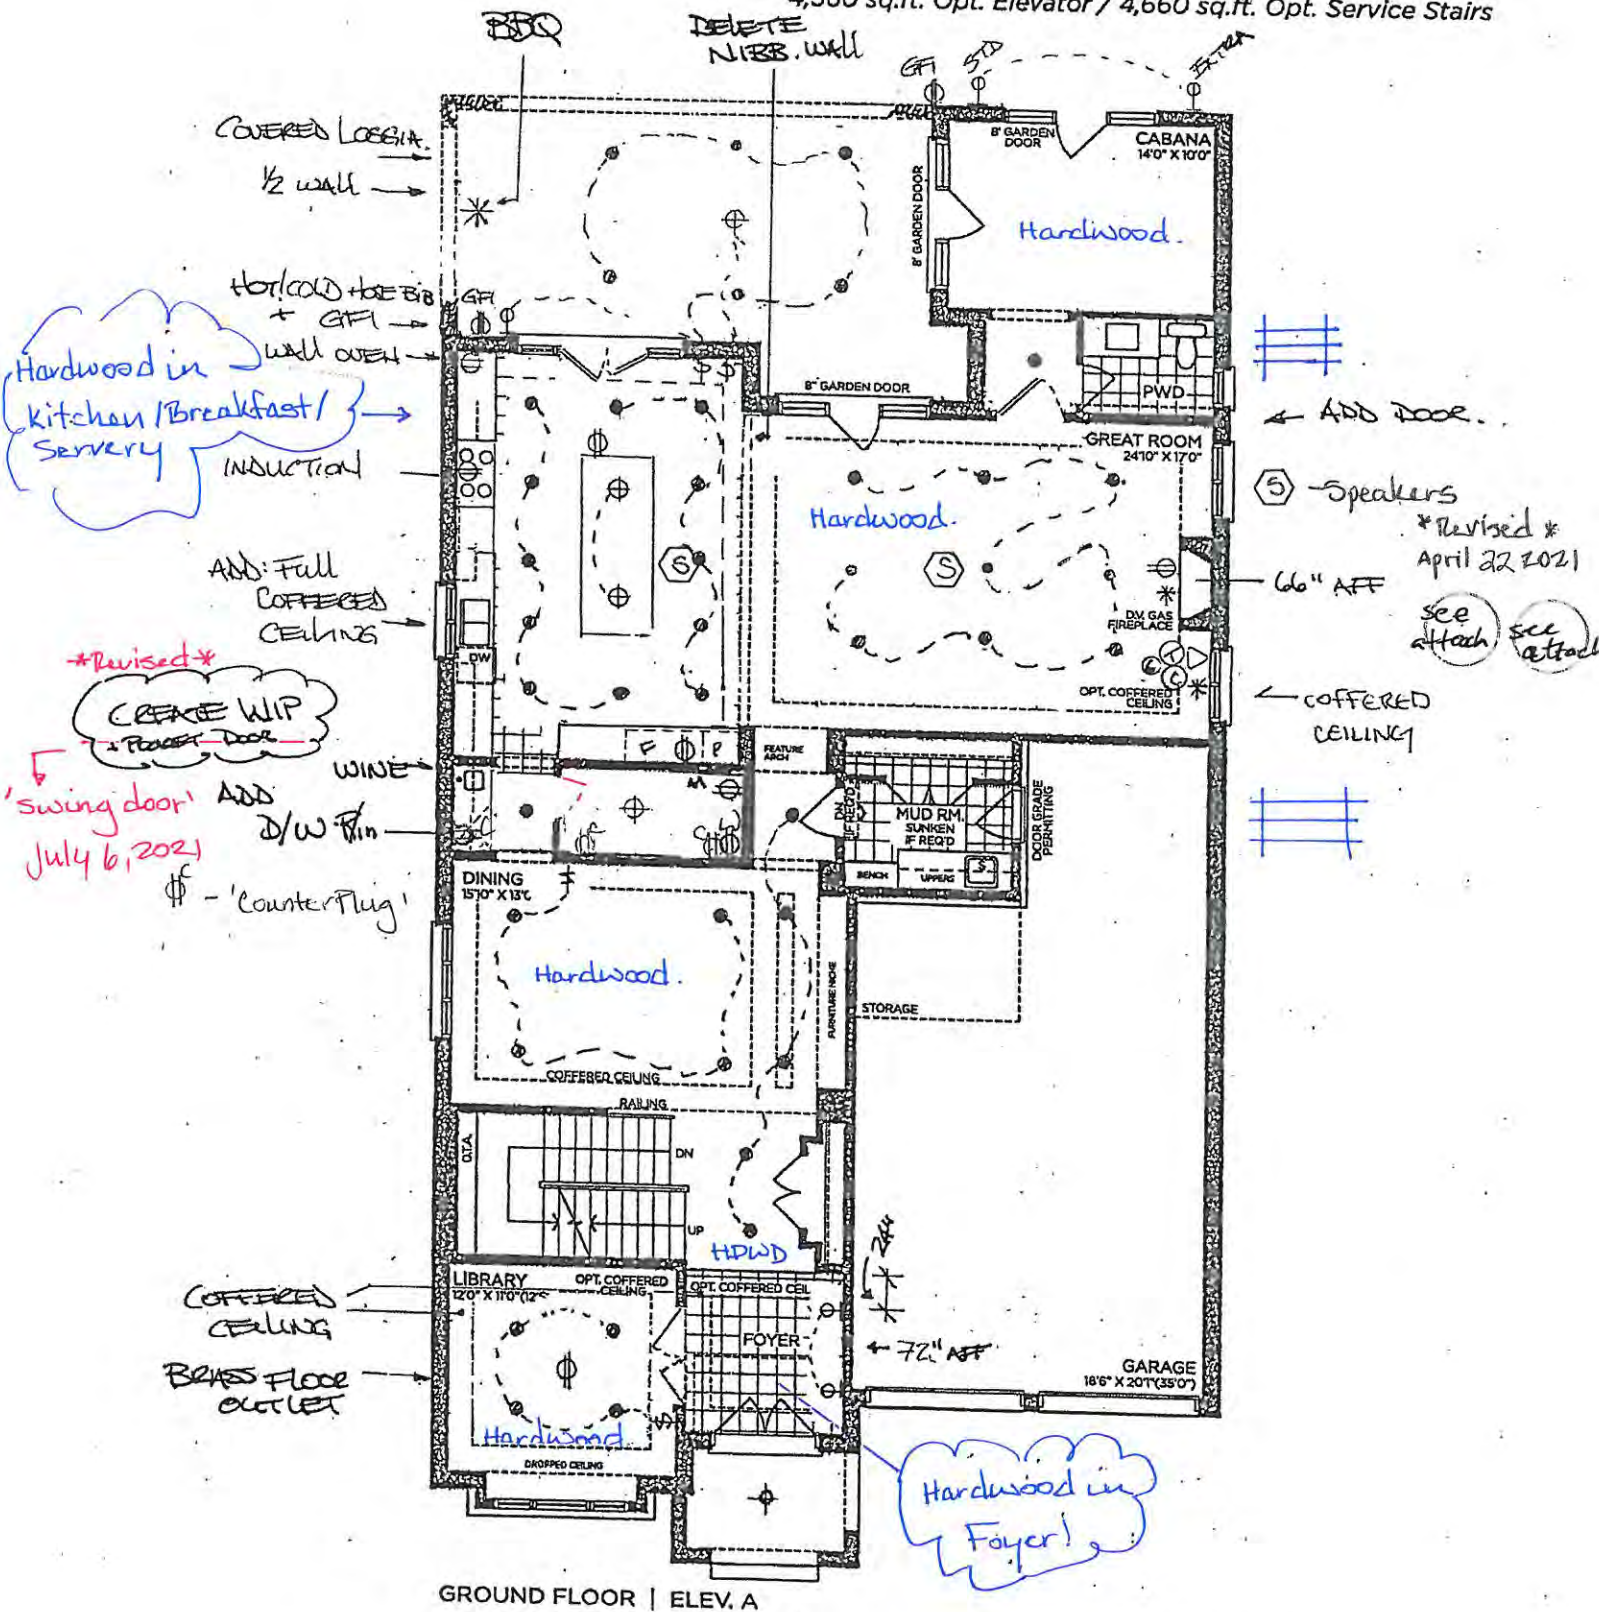 4,580 sq.ft. Opt. Elevator / 4,660 sq.ft. Opt. Service Stairs
BBQ
DELETE
NIBB. WALL
GFI
STD
EXTRA
COVERED LOGGIA.
1/2 WALL
8' GARDEN
DOOR
CABANA
14'0" X 10'0"
8' GARDEN DOOR
Hardwood.
HOT/COLD HOSE BIB
+ GFI
GFI
WALL OVEN
Hardwood in
Kitchen/Breakfast/
Servery
INDUCTION
8' GARDEN DOOR
PWD
ADD DOOR.
GREAT ROOM
24'10" X 17'0"
Hardwood.
S
S
S - Speakers
*Revised*
April 22 2021
see
attach
see
attach
ADD: Full
COFFERED
CEILING
66" AFF
D.V. GAS
FIREPLACE
T
C
C
OPT. COFFERED
CEILING
COFFERED
CEILING
DW
*Revised*
CREATE WIP
+ POCKET DOOR
'swing door'
July 6, 2021
WINE
ADD
D/W R/in
F
P
FEATURE
ARCH
M
C
C
DN
IF REQ'D
MUD RM.
SUNKEN
IF REQ'D
DOOR GRADE
PERMITTING
BENCH
UPPERS
S
C - 'Counter Plug'
DINING
15'10" X 13'0
Hardwood.
COFFERED CEILING
FURNITURE NICHE
STORAGE
RAILING
O.T.A.
DN
UP
HDWD
24"
LIBRARY
12'0" X 11'0"(12'
OPT. COFFERED
CEILING
OPT. COFFERED CEIL
COFFERED
CEILING
FOYER
72" AFF
BRASS FLOOR
OUTLET
Hardwood
DROPPED CEILING
GARAGE
18'6" X 20'1"(35'0")
Hardwood in
Foyer!
GROUND FLOOR | ELEV. A